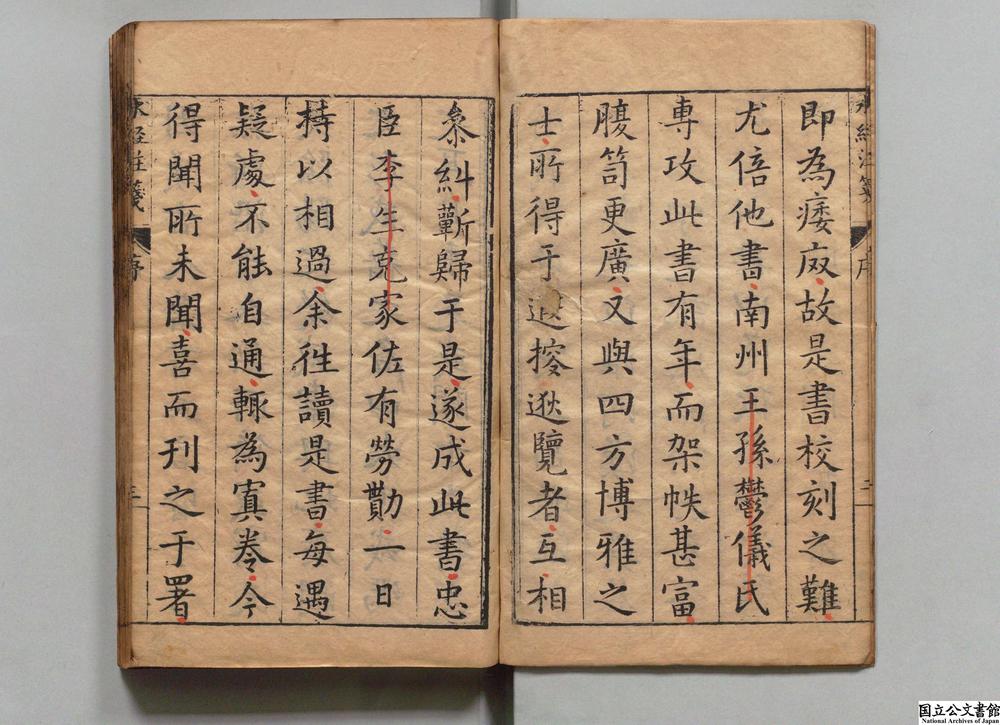 即為痿㡿故是書校刻之難
尤倍他書南州王孫鬱儀氏
專攻此書有年而架帙甚富
腹笥更廣又與四方博雅之
士所得于遐搜逖覽者互相
叅糾蘄歸于是遂成此書忠
臣李生克家佐有勞勩一日
持以相過余徃讀是書每遇
疑處不能自通輒為寘卷今
得聞所未聞喜而刊之于署
水經注箋
序
二
水經注箋
序
三
国立公文書館
National Archives of Japan